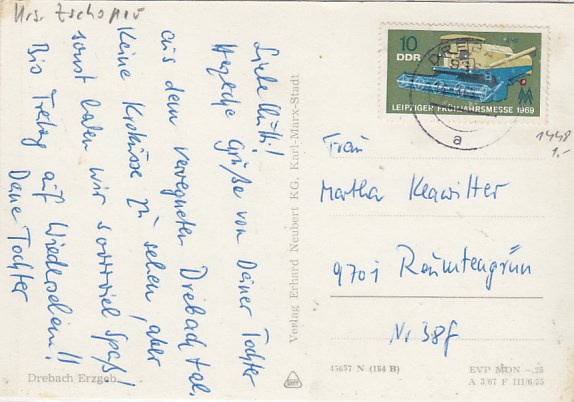 Krs. Zschopau
Liebe Mutti!
Herzliche Grüße von Deiner Tochter
aus dem verregneten Drebachtal.
Keine Krokusse zu sehen, aber
sonst haben wir soviel Spaß!
Bis Freitag auf Wiedersehen!!
Deine Tochter
Drebach Erzgeb.
Verlag Erhard Neubert KG, Karl-Marx-Stadt
10
DDR
LEIPZIGER FRÜHJAHRSMESSE 1969
a
1448
1,-
Frau
Martha
9701 Räumtengrün
Nr 38f
45657 N (164 H)
EVP MDN –,25
A 3/67 F III/6/75